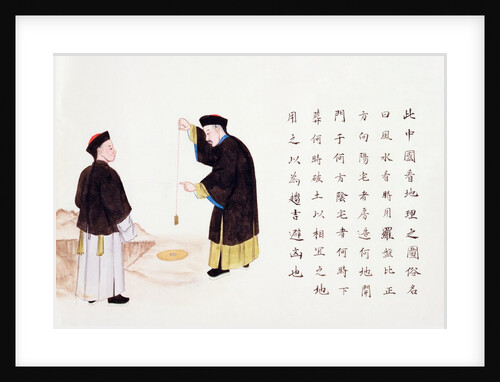 此中國看地理之圖俗名
曰風水看時用羅盤比正
方向陽宅者房造何地開
門于何方陰宅者何時下
葬何時破土以相宜之地
用之以為趨吉避凶也